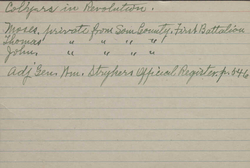 Colyers in Revolution.
Moses, private from Som. County. First Battalion
Thomas " " " " "
John, " " " " "
Adj. Gen. Wm. Strykers Official Register p. 546